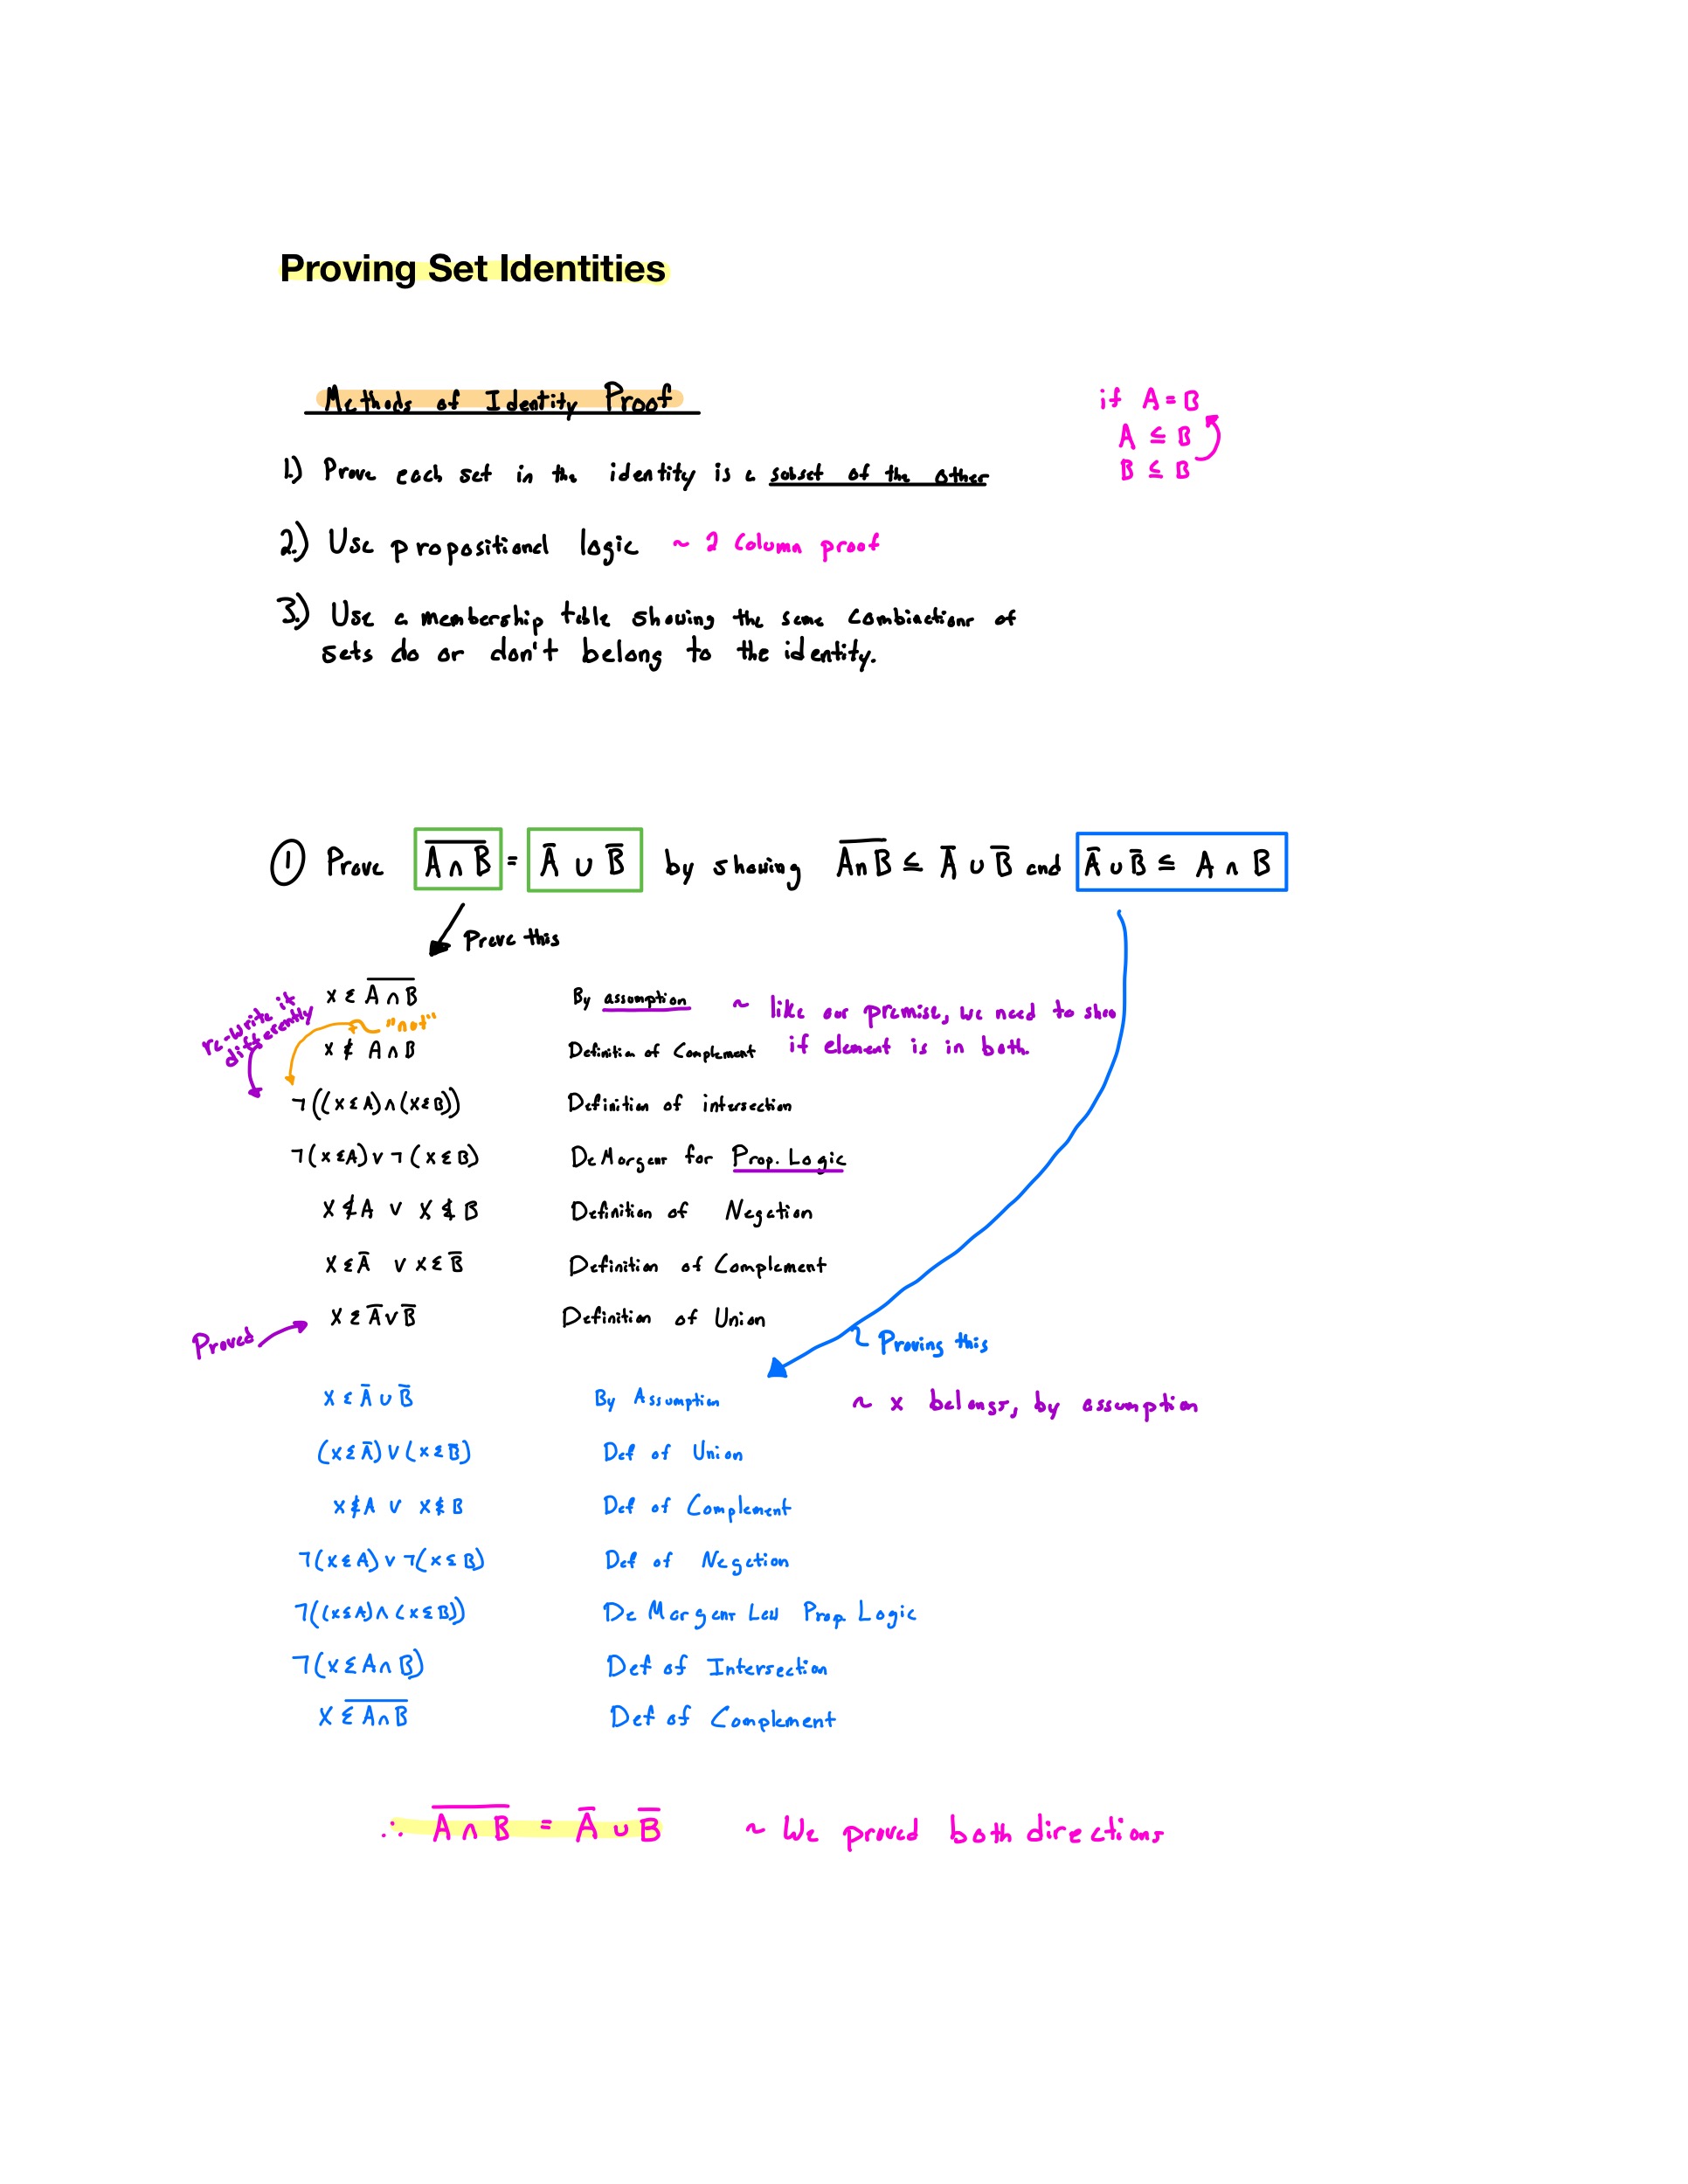 Proving Set Identities
Methods of Identity Proof
if A = B
A ⊆ B
B ⊆ B
1.) Prove each set in the identity is a subset of the other
2.) Use propositional logic ~ 2 Column proof
3.) Use a membership table showing the same combinations of
sets do or don't belong to the identity.
① Prove A̅ ̅∩̅ ̅B̅ = A̅ ∪ B̅ by showing A̅∩̅B̅ ⊆ A̅ ∪ B̅ and A̅ ∪ B̅ ⊆ A ∩ B
Prove this
x ∈ A̅ ̅∩̅ ̅B̅ By assumption ~ like our premise, we need to show
re-write it differently
"not"
x ∉ A ∩ B Definition of Complement if element is in both.
¬((x∈A)∧(x∈B)) Definition of intersection
¬(x∈A) ∨ ¬(x∈B) DeMorgans for Prop. Logic
x∉A ∨ x∉B Definition of Negation
x∈A̅ ∨ x∈B̅ Definition of Complement
Proved x∈A̅∨B̅ Definition of Union
Proving this
x∈A̅∪B̅ By Assumption ~ x belongs, by assumption
(x∈A̅)∨(x∈B̅) Def of Union
x∉A ∨ x∉B Def of Complement
¬(x∈A)∨¬(x∈B) Def of Negation
¬((x∈A)∧(x∈B)) De Morgans Law Prop. Logic
¬(x∈A∩B) Def of Intersection
x∈A̅∩̅B̅ Def of Complement
∴ A̅ ̅∩̅ ̅B̅ = A̅∪B̅ ~ We proved both directions